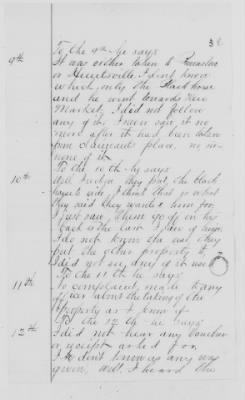 38
To the 9th he says
9th
It was either taken to Brownsboro
or Huntsville I don't know
which, only the black horse
and he went towards New
Market, I did not follow
any of em I never saw it no
more after it had been taken
from claimants place, no in-
none of it
To the 10th he says
10th
Well I judge they put the black
horse to ride, I think that is what
they said they wanted him for
I just saw them go off on his
back is the law I saw of him
I do not know the use they
put the other property to,
I did not see any of it used
To the 11th he says
11th
No complaint made to any
officer about the taking of the
property as I know of
To the 12th he says
12th
I did not hear any voucher
or receipt asked for
I don't know as any was
given, well I heard the